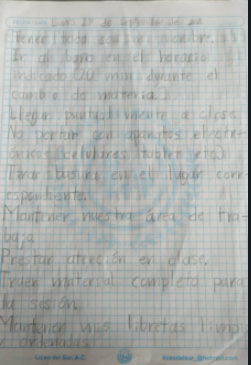 Lunes 27 de
Tener todo con mi nombre.
Ir al baño en el horario
indicado (20 min durante el
cambio de materia.)
Llegar puntualmente a clase.
No portar con aparatos electró
ónicos (celulares, tablet, etc)
Tirar basura en el lugar corr-
espondiente.
Mantener nuestra área de tra-
bajo
Prestar atención en clase.
Traer material completo para
la sesión.
Mantener mis libretas limp
y ordenadas.
Liceo del Sur. A.C.